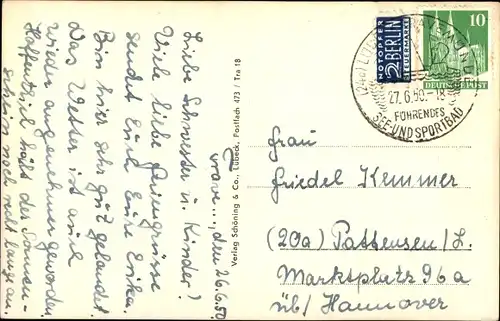 Trave..., den 26.6.50
Liebe Schwester u. Kinder!
Viele liebe Feriengrüsse
sendet Euch Eure Erika.
Bin hier sehr gut gelandet.
Das Wetter ist auch
wieder angenehmer geworden.
Hoffentlich hält der Sonnen-
schein noch recht lange an.
Verlag Schöning & Co., Lübeck, Postfach 473 / Tra 18
NOTOPFER
2 BERLIN
STEUERMARKE
10
DEUTSCHE POST
(24a) LÜBECK-TRAVEMÜNDE
27.6.50.-18
FÜHRENDES
SEE-UND SPORTBAD
Frau
Friedel Kemmer
(20a) Pattensen/L.
Marktplatz 96a
üb/ Hannover